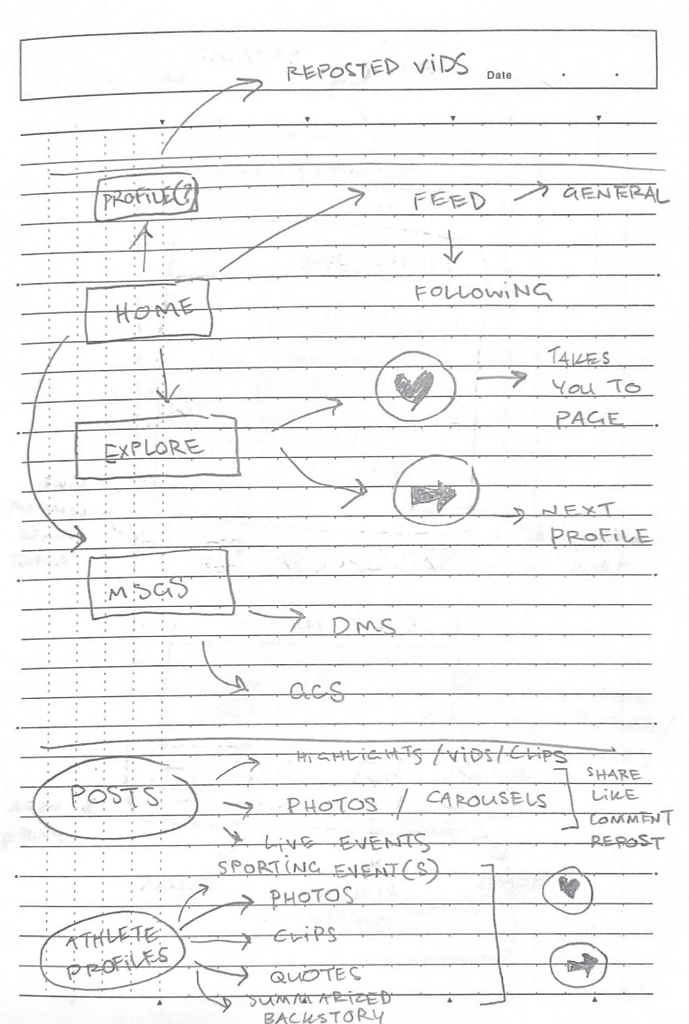 REPOSTED ViDS
Date
PROFILE(?)
FEED
GENERAL
HOME
FOLLOWiNG
TAKES
YOU TO
PAGE
EXPLORE
NEXT
PROFILE
MSGS
DMS
GCS
HiGHLiGHTS/ViDS/CLiPS
POSTS
PHOTOS / CAROUSELS
LiVE EVENTS
SHARE
LiKE
COMMENT
REPOST
SPORTiNG EVENT(S)
PHOTOS
CLiPS
ATHLETE
PROFiLES
QUOTES
SUMMARiZED
BACKSTORY